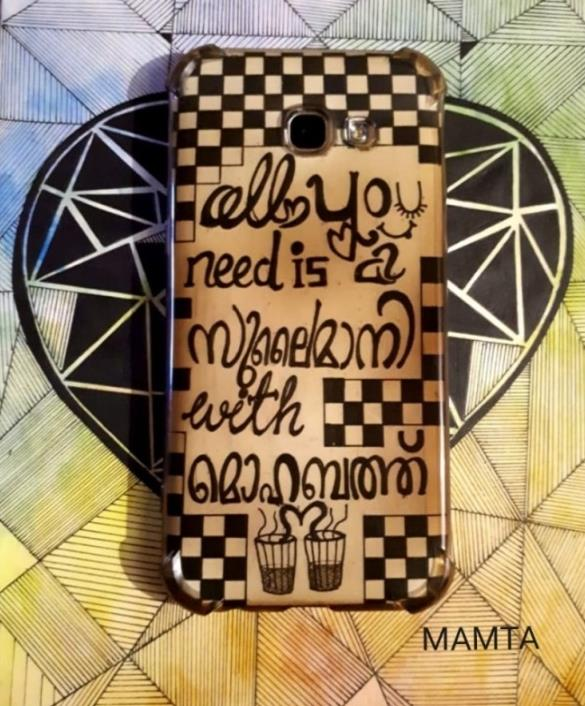 all you
need is a
സുലൈമാനി
with
മൊഹബത്ത്
MAMTA